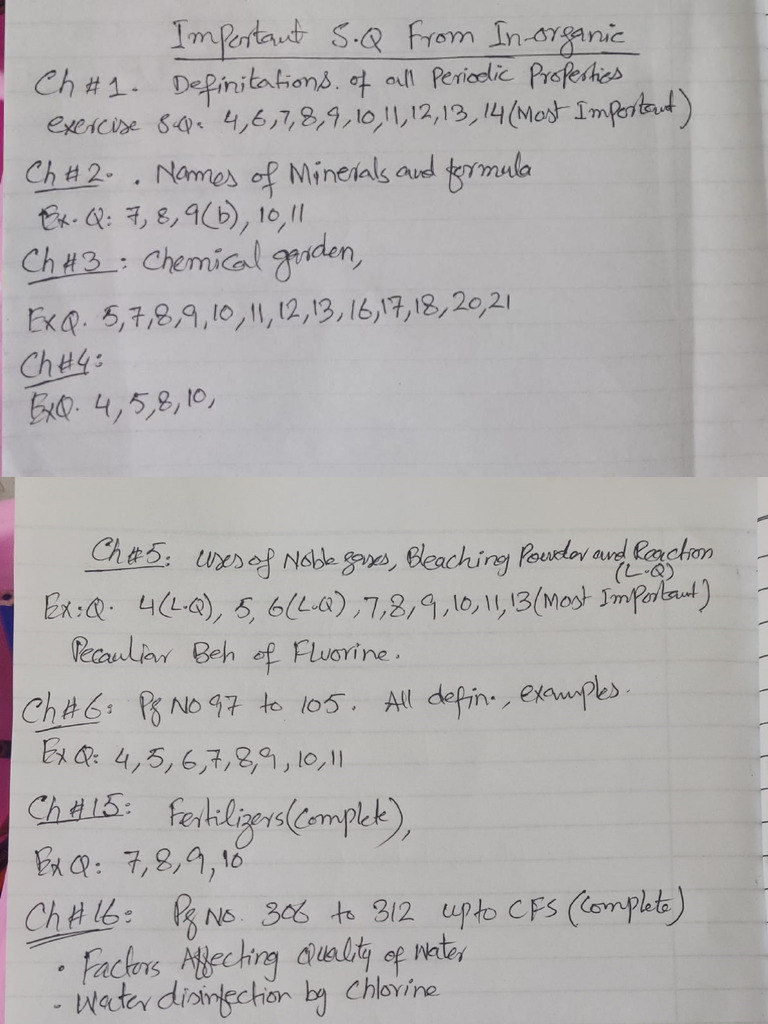 Important S.Q From In-organic
Ch #1. Definitations. of all Periodic Properties
exercise S.Q. 4,6,7,8,9,10,11,12,13,14 (Most Important)
Ch #2. . Names of Minerals and formula
Ex. Q: 7, 8, 9(b), 10, 11
Ch #3 : Chemical garden,
Ex Q. 5,7,8,9,10,11,12,13,16,17,18,20,21
Ch #4:
Ex Q. 4, 5, 8, 10,
Ch #5: Uses of Noble gases, Bleaching Powder and Reaction
(L.Q)
Ex: Q. 4(L.Q), 5, 6(L.Q), 7,8,9,10,11,13 (Most Important)
Pecauliar Beh of Fluorine.
Ch #6: Pg No 97 to 105. All defin., examples.
Ex Q: 4, 5, 6, 7, 8, 9, 10, 11
Ch #15: Fertilizers (Complete),
Ex Q: 7, 8, 9, 10
Ch #16: Pg No. 306 to 312 upto CFS (Complete)
• Factors Affecting Quality of Water
• Water disinfection by Chlorine